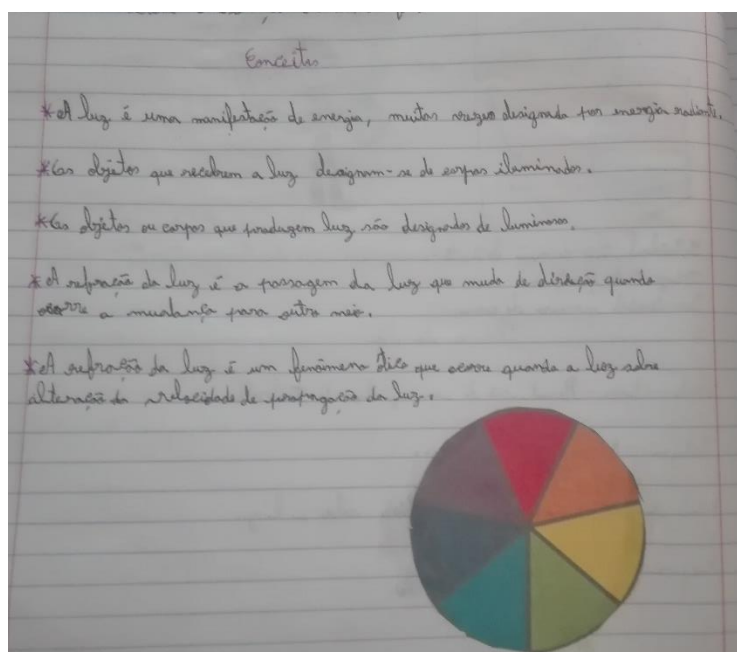 Conceitos
*A luz é uma manifestação de energia, muitas vezes designada por energia radiante.
*Os objetos que recebem a luz designam-se de corpos iluminados.
*Os objetos ou corpos que produzem luz são designados de luminosos.
*A refração da luz é a passagem da luz que muda de direção quando
ocorre a mudança para outro meio.
*A refração da luz é um fenômeno que ocorre quando a luz sobre
alteração da velocidade de propagação da luz.